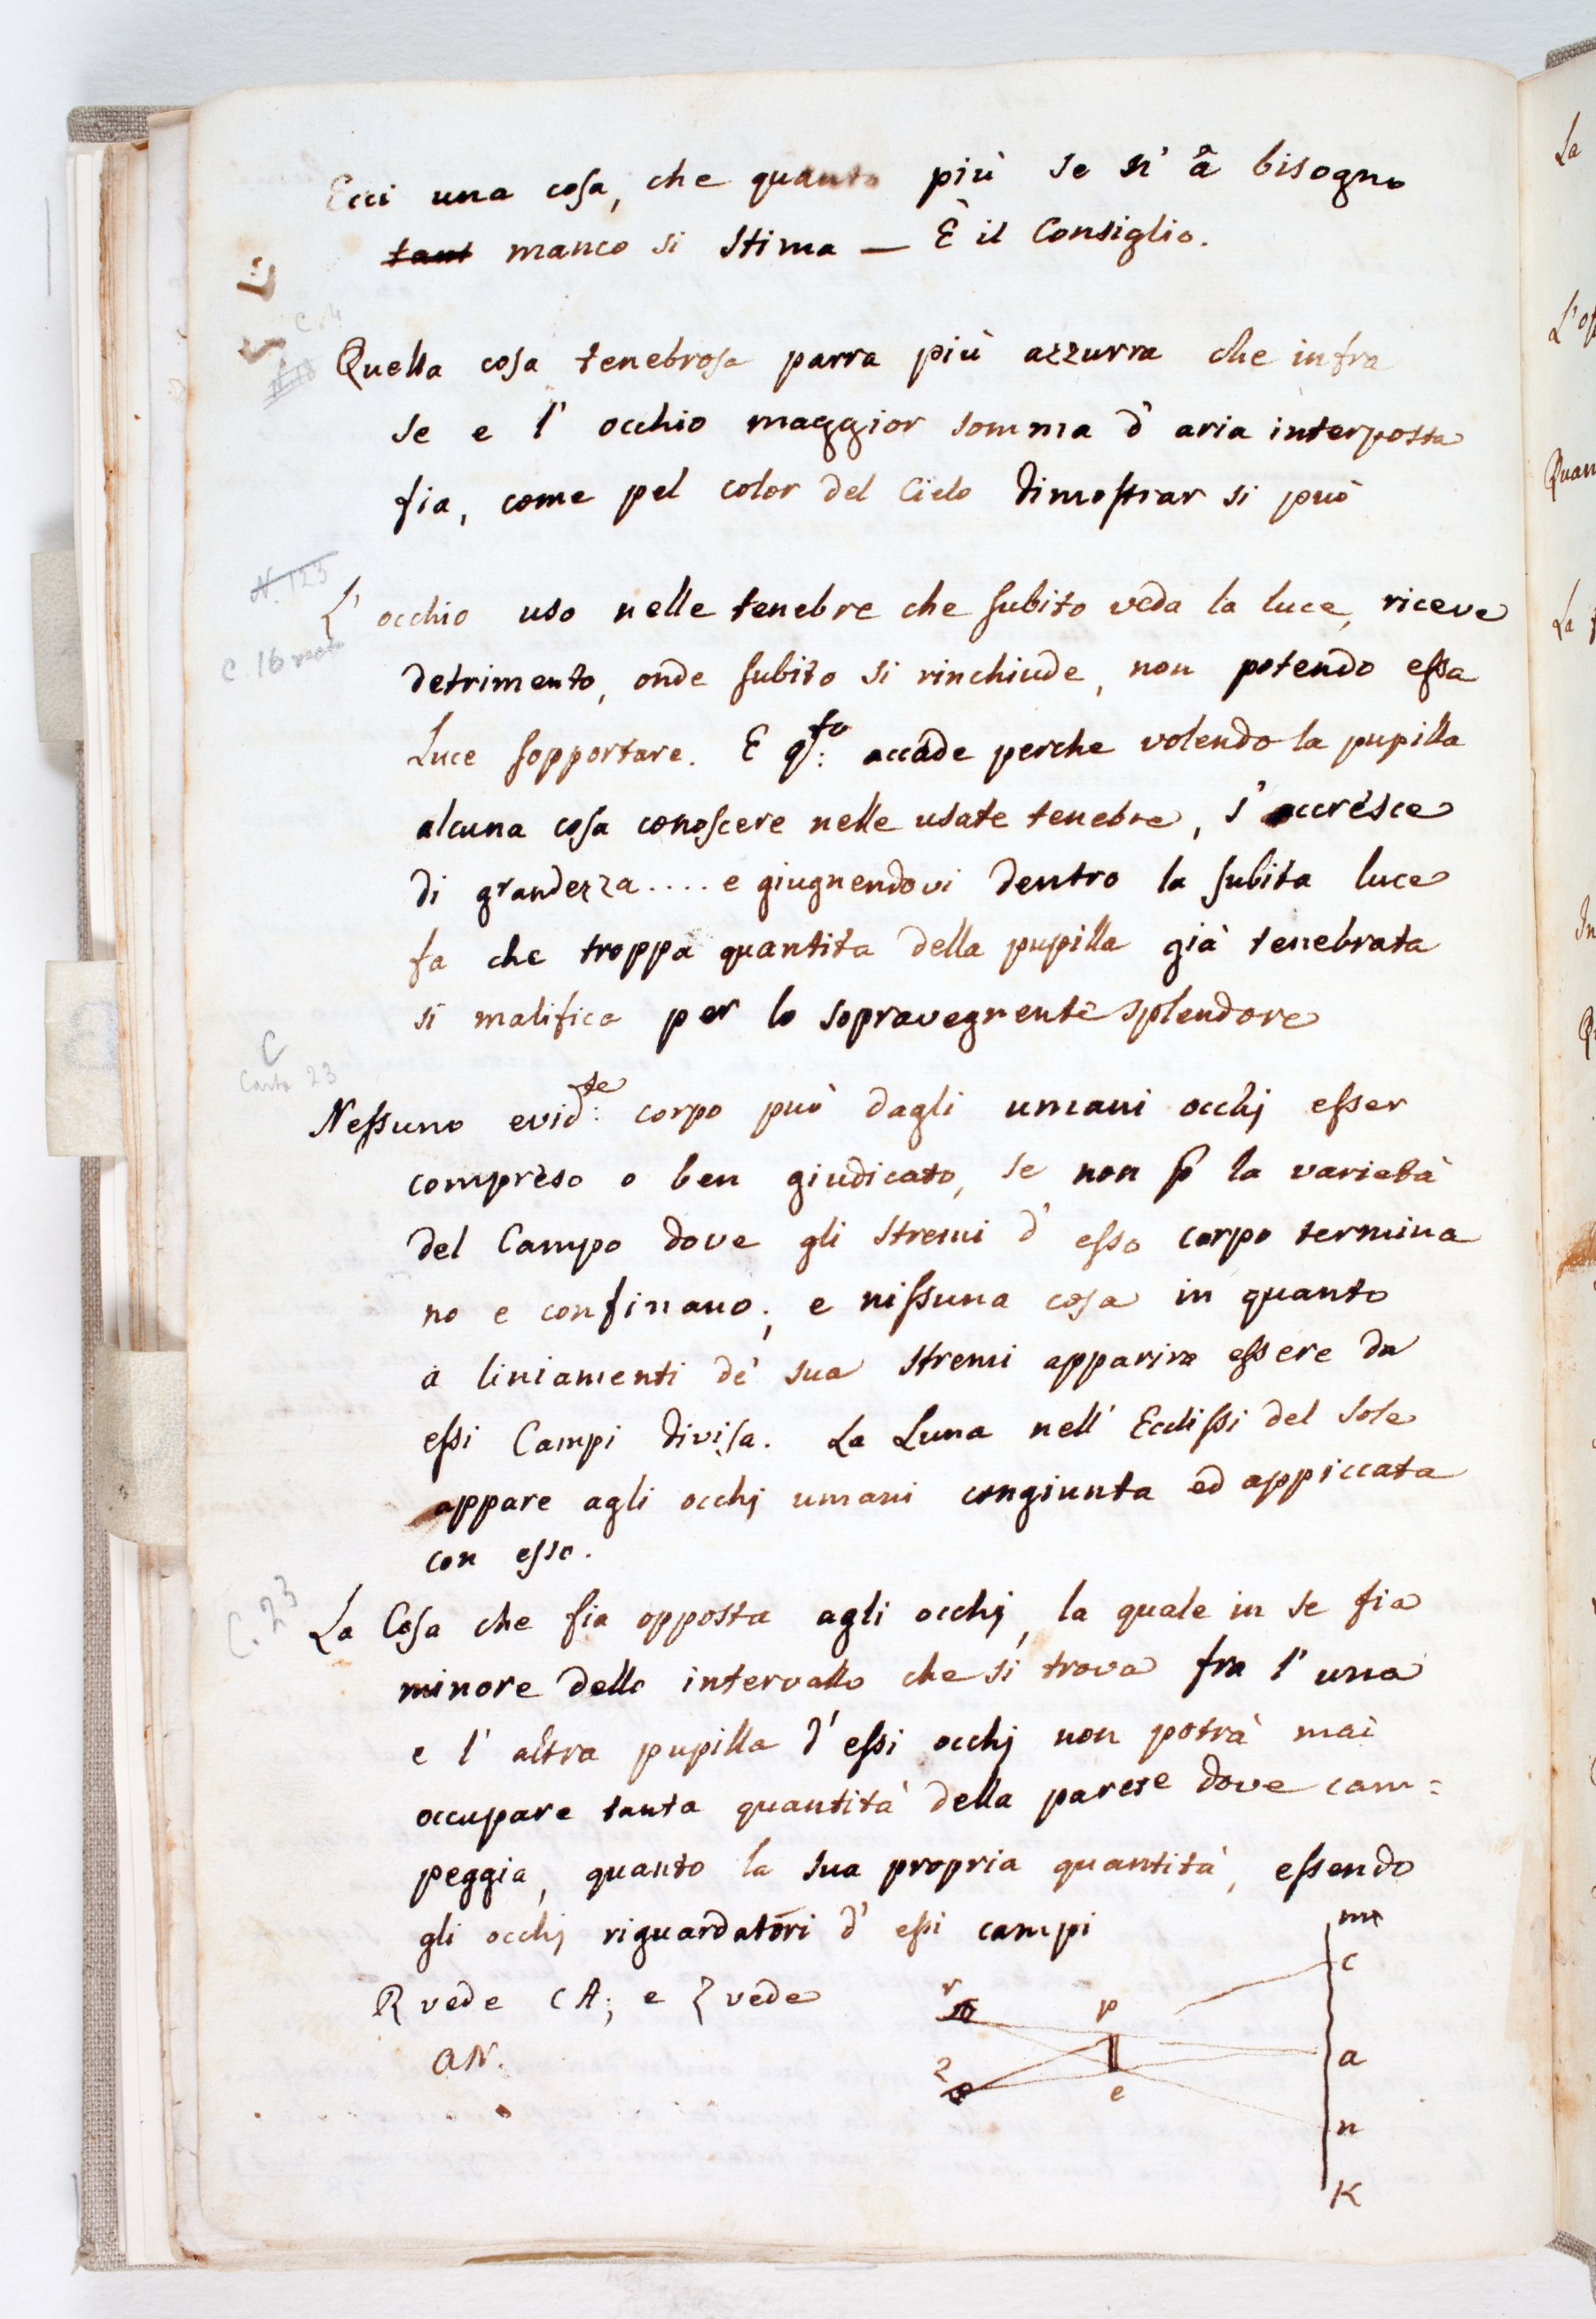 Ecci una cosa, che quanto più se n' à bisogno
tant manco si stima — È il Consiglio.
C. 4
Quella cosa tenebrosa parra più azzurra che infra
se e l' occhio maggior somma d' aria interposta
fia, come pel color del Cielo dimostrar si può
N. 123
L' occhio uso nelle tenebre che subito veda la luce, riceve
C. 16
detrimento, onde subito si rinchiude, non potendo essa
Luce sopportare. E q:sto accade perche volendo la pupilla
alcuna cosa conoscere nelle usate tenebre, s' accresce
di grandezza.... e giugnendovi dentro la subita luce
fa che troppa quantita della pupilla già tenebrata
si malifica per lo sopravegnente splendore
C
Carta 23
Nessuno evid:te corpo può dagli umani occhj esser
compreso o ben giudicato, se non p la varietà
del Campo dove gli stremi d' esso corpo termina
no e confinano; e nissuna cosa in quanto
a liniamenti de' sua stremi apparira essere da
essi Campi divisa. La Luna nell' Ecclissi del Sole
appare agli occhj umani congiunta ed appiccata
con esso.
C. 23
La Cosa che fia opposta agli occhj, la quale in se fia
minore dello intervallo che si trova fra l' una
e l' altra pupilla d' essi occhj non potrà mai
occupare tanta quantità della parete dove cam=
peggia, quanto la sua propria quantità, essendo
gli occhj riguardatori d' essi campi
R vede CA; e 2 vede
AN.
m
c
r
p
a
2
e
n
K